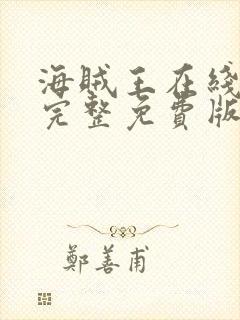 海贼王在綫
完整免費版
鄭善甫